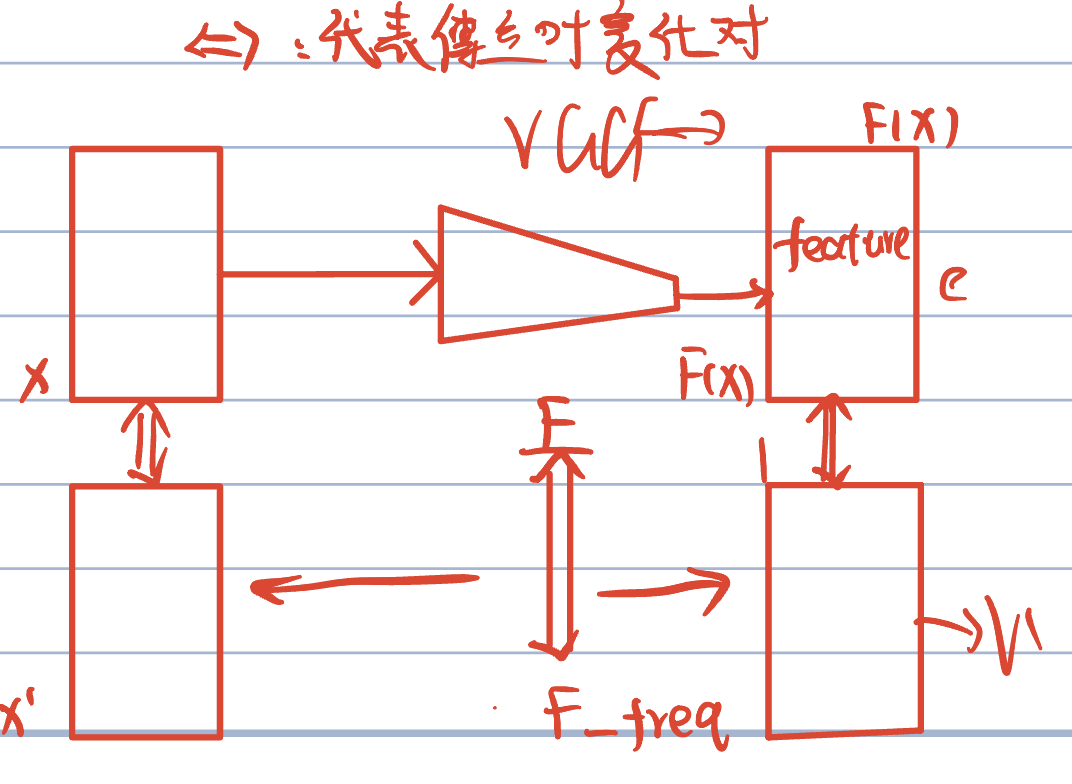 ⇔ : 代表傅立叶变化对
VGG →
F(X)
feature
e
X
F(X)
F
X'
F_freq